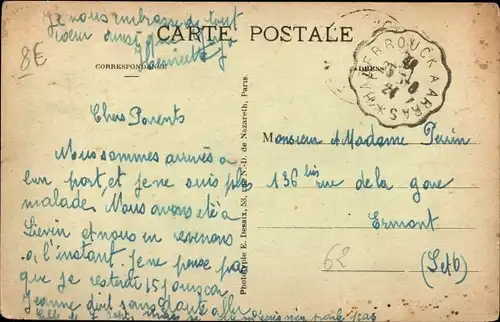 Je vous embrasse de tout
coeur ainsi que
Henriette
8€
CARTE POSTALE
CORRESPONDANCE
ADRESSE
HAZEBROUCK A ARRAS
24
Chers Parents
Nous sommes arrivés à
bon port, et je ne suis plus
malade. Nous avons été à
Liévin et nous en revenons
à l'instant. Je ne pense pas
que je resterai 15 jours car
Jeanne doit sans doute aller
Phototypie E. Desaix, 53, N.-D. de Nazareth, Paris.
Monsieur et Madame Perrin
136 bis rue de la gare
Ermont
(S et O)
62